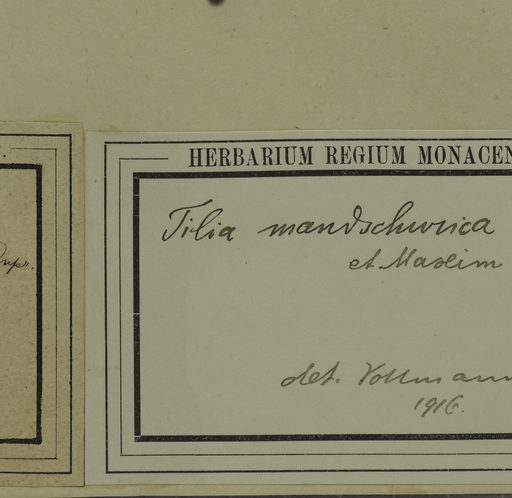 Rupr.
HERBARIUM REGIUM MONACEN
Tilia mandschurica
et Maxim
det. Vollmann
1916.